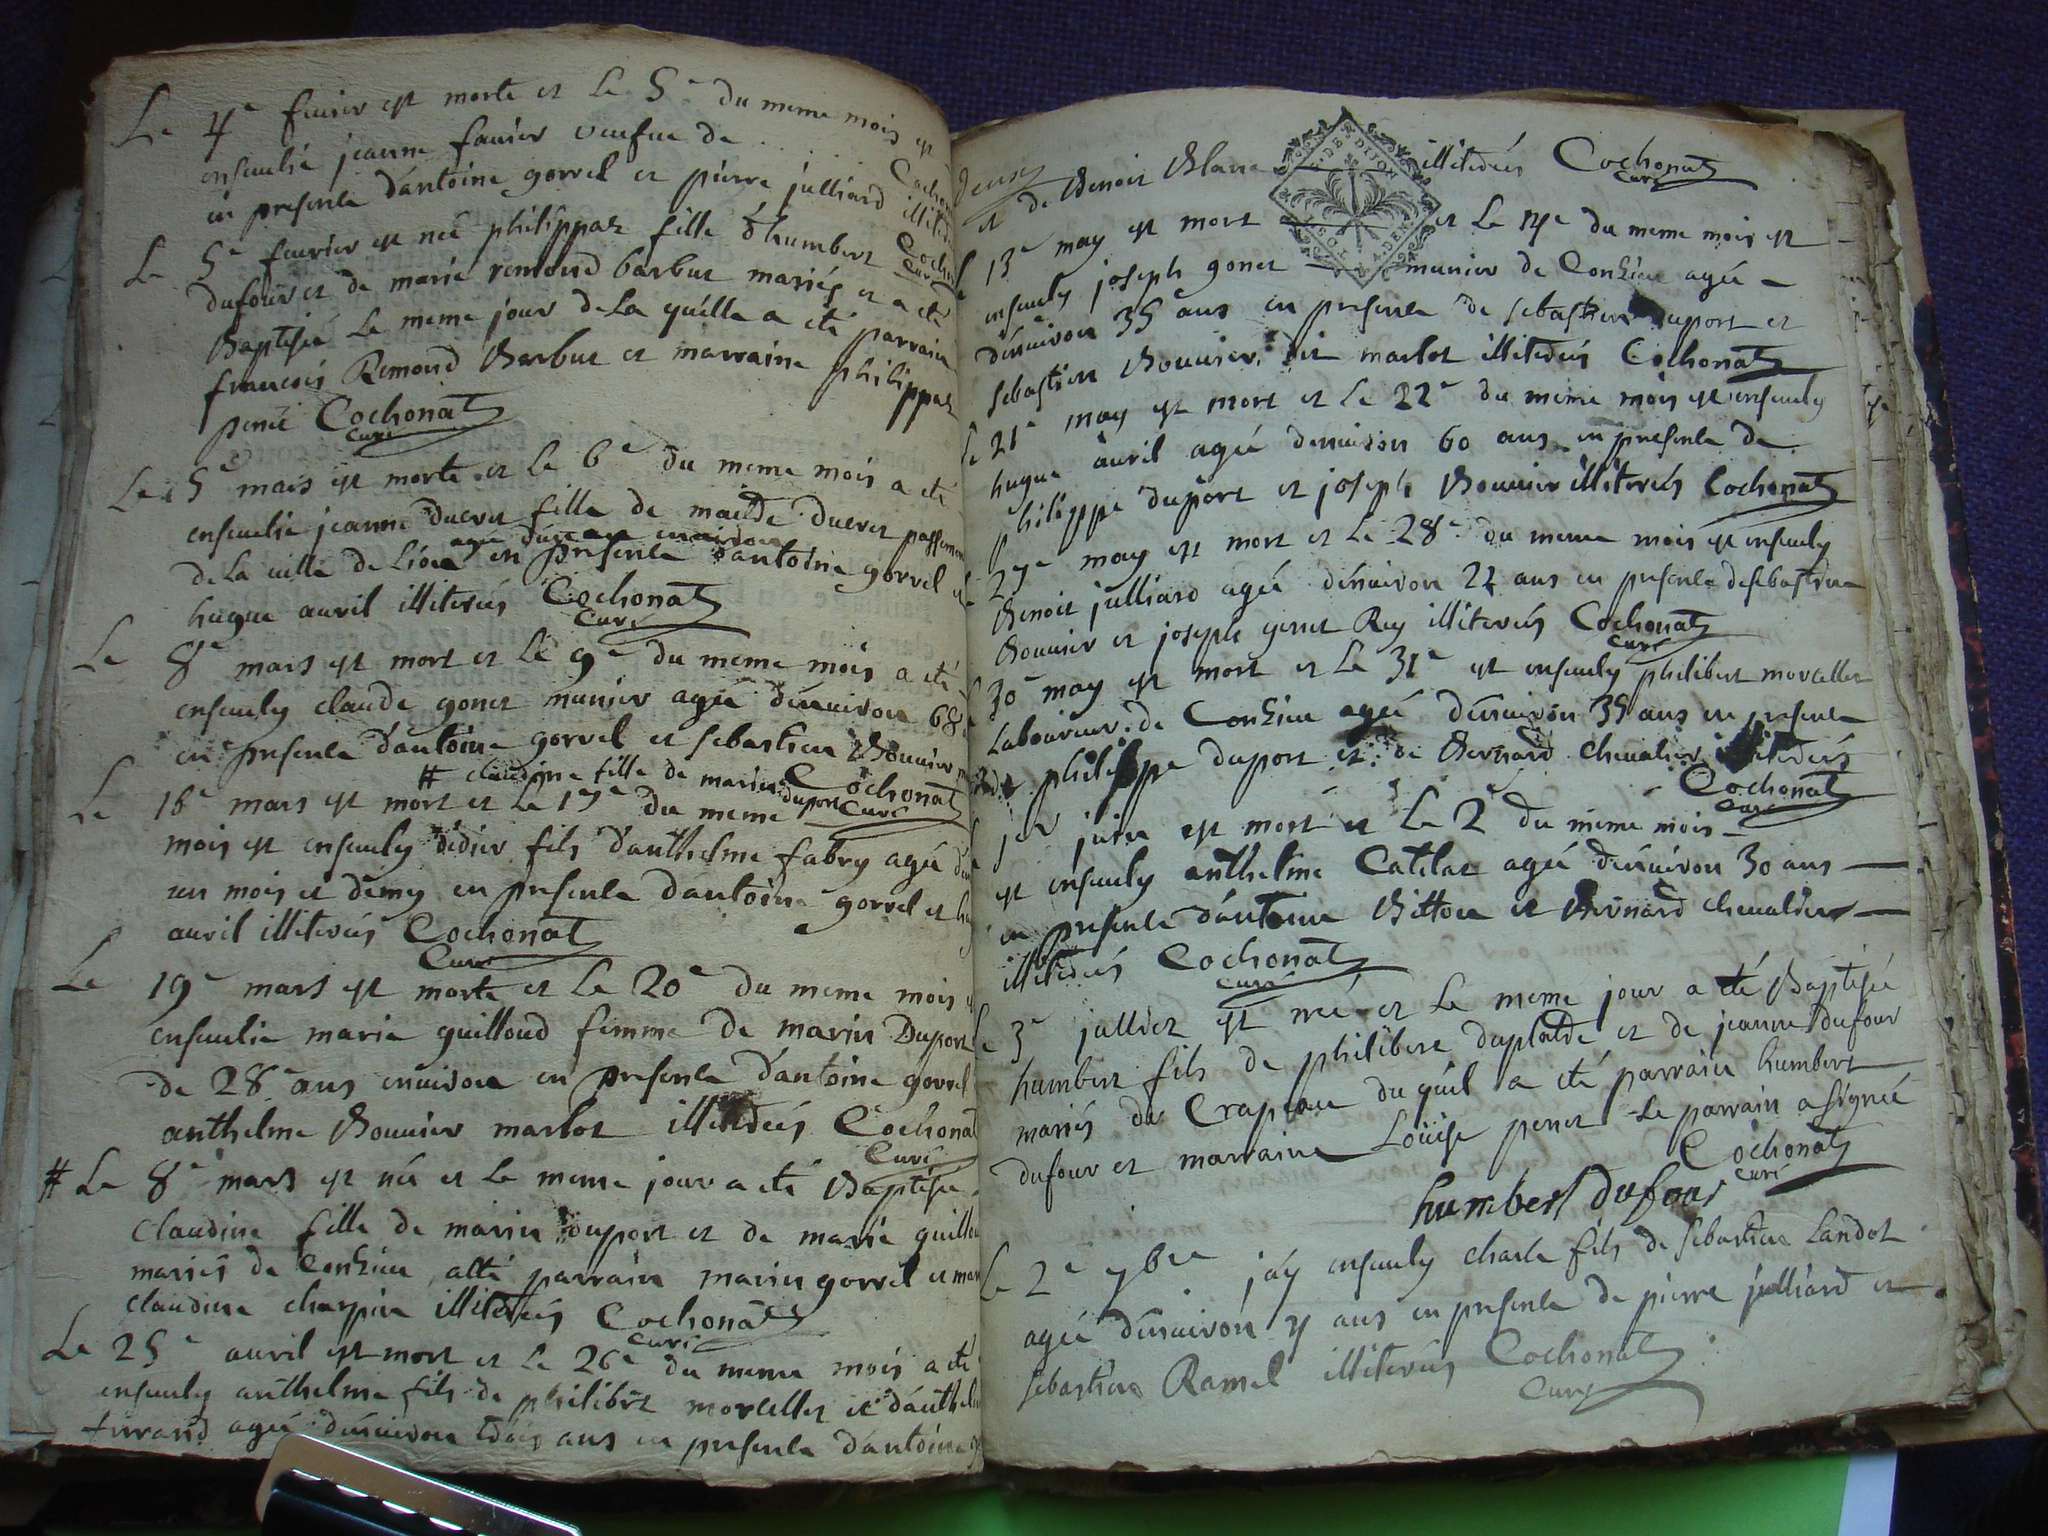 Le 4e feuier est morte et Le 5e du meme mois est
enseuelie jeanne fauier veufue de
en presence d'antoine gorrel et pierre julliard
Cochonat
Curé
Le 5e feurier est neé philippaz fille d'humbert
dufour et de marie remond barbut mariés et a eté
Baptiseé Le meme jour de La quelle a eté parrain
francois Remond Barbut et marraine philippaz
peneì Cochonat
Curé
Le 5e mars est morte et Le 6e du meme mois a eté
enseuelie jeanne ducret fille de ducret
de La ville de Lion en presence d'antoine gorrel et
hugue auril illiterés Cochonat
Curé
Le 8e mars est mort et Le 9e du meme mois a eté
enseuely claude gonet munier ageé d'enuiron 68
en presence d'antoine gorrel et sebastien Bouuier
Cochonat
Curé
# claudine fille de marin duport
Le 16e mars est mort et Le 17e du meme
mois est enseuely didier fils d'anthelme fabry ageé
un mois et demy en presence d'antoine gorrel et
auril illiterés Cochonat
Curé
Le 19e mars est morte et Le 20e du meme mois
enseuelie marie guilloud femme de marin Duport
de 28 ans enuiron en presence d'antoine gorrel
anthelme Bouuier marlot illiterés Cochonat
Curé
# Le 8e mars est neé et Le meme jour a eté Baptiseé
claudine fille de marin duport et de marie
mariés de Conzieu, a eté parrain marin gorrel et
claudine charpin illiterés Cochonat
Curé
Le 25e auril est mort et Le 26e du meme mois a eté
enseuely anthelme fils de philibert morcellet et
ageé d'enuiron trois ans en presence d'antoine
et de Benoit Blanc illiterés Cochonat
Curé
G. DE DIJON
13e may est mort et Le 14e du meme mois est
enseuely joseph gonet munier de Conzieu ageé
d'enuiron 35 ans en presence de sebastien duport et
sebastien Bouuier dit marlot illiterés Cochonat
Le 21e may est mort et Le 22e du meme mois est enseuely
hugue auril ageé d'enuiron 60 ans en presence de
philippe duport et joseph Bouuier illiterés Cochonat
Le 27e may est mort et Le 28e du meme mois est enseuely
Benoit julliard ageé d'enuiron ans en presence de sebastien
Bouuier et joseph genet Rey illiterés Cochonat
Curé
30e may est mort et Le 31e est enseuely philibert morcellet
Laboureur de Conzieu ageé d'enuiron 35 ans en presence
de philippe duport et de Bernard cheualier illiterés
Cochonat
Curé
jer juin est mort et Le 2e du meme mois
est enseuely anthelme Catelat ageé d'enuiron 30 ans
en presence d'antoine Bitton et Bernard cheualier
illiterés Cochonat
Curé
Le 3e julliet est neé et Le meme jour a eté Baptiseé
humbert fils de philibert duplatre et de jeanne dufour
mariés de Crapeou du quel a eté parrain humbert
dufour et marraine Loüise penet Le parrain a signé
Cochonat
Curé
humbert dufour
Le 2e 7bre j'ay enseuely charle fils de sebastien Landot
ageé d'enuiron 7 ans en presence de pierre julliard et
sebastien Ramel illiterés Cochonat
Curé